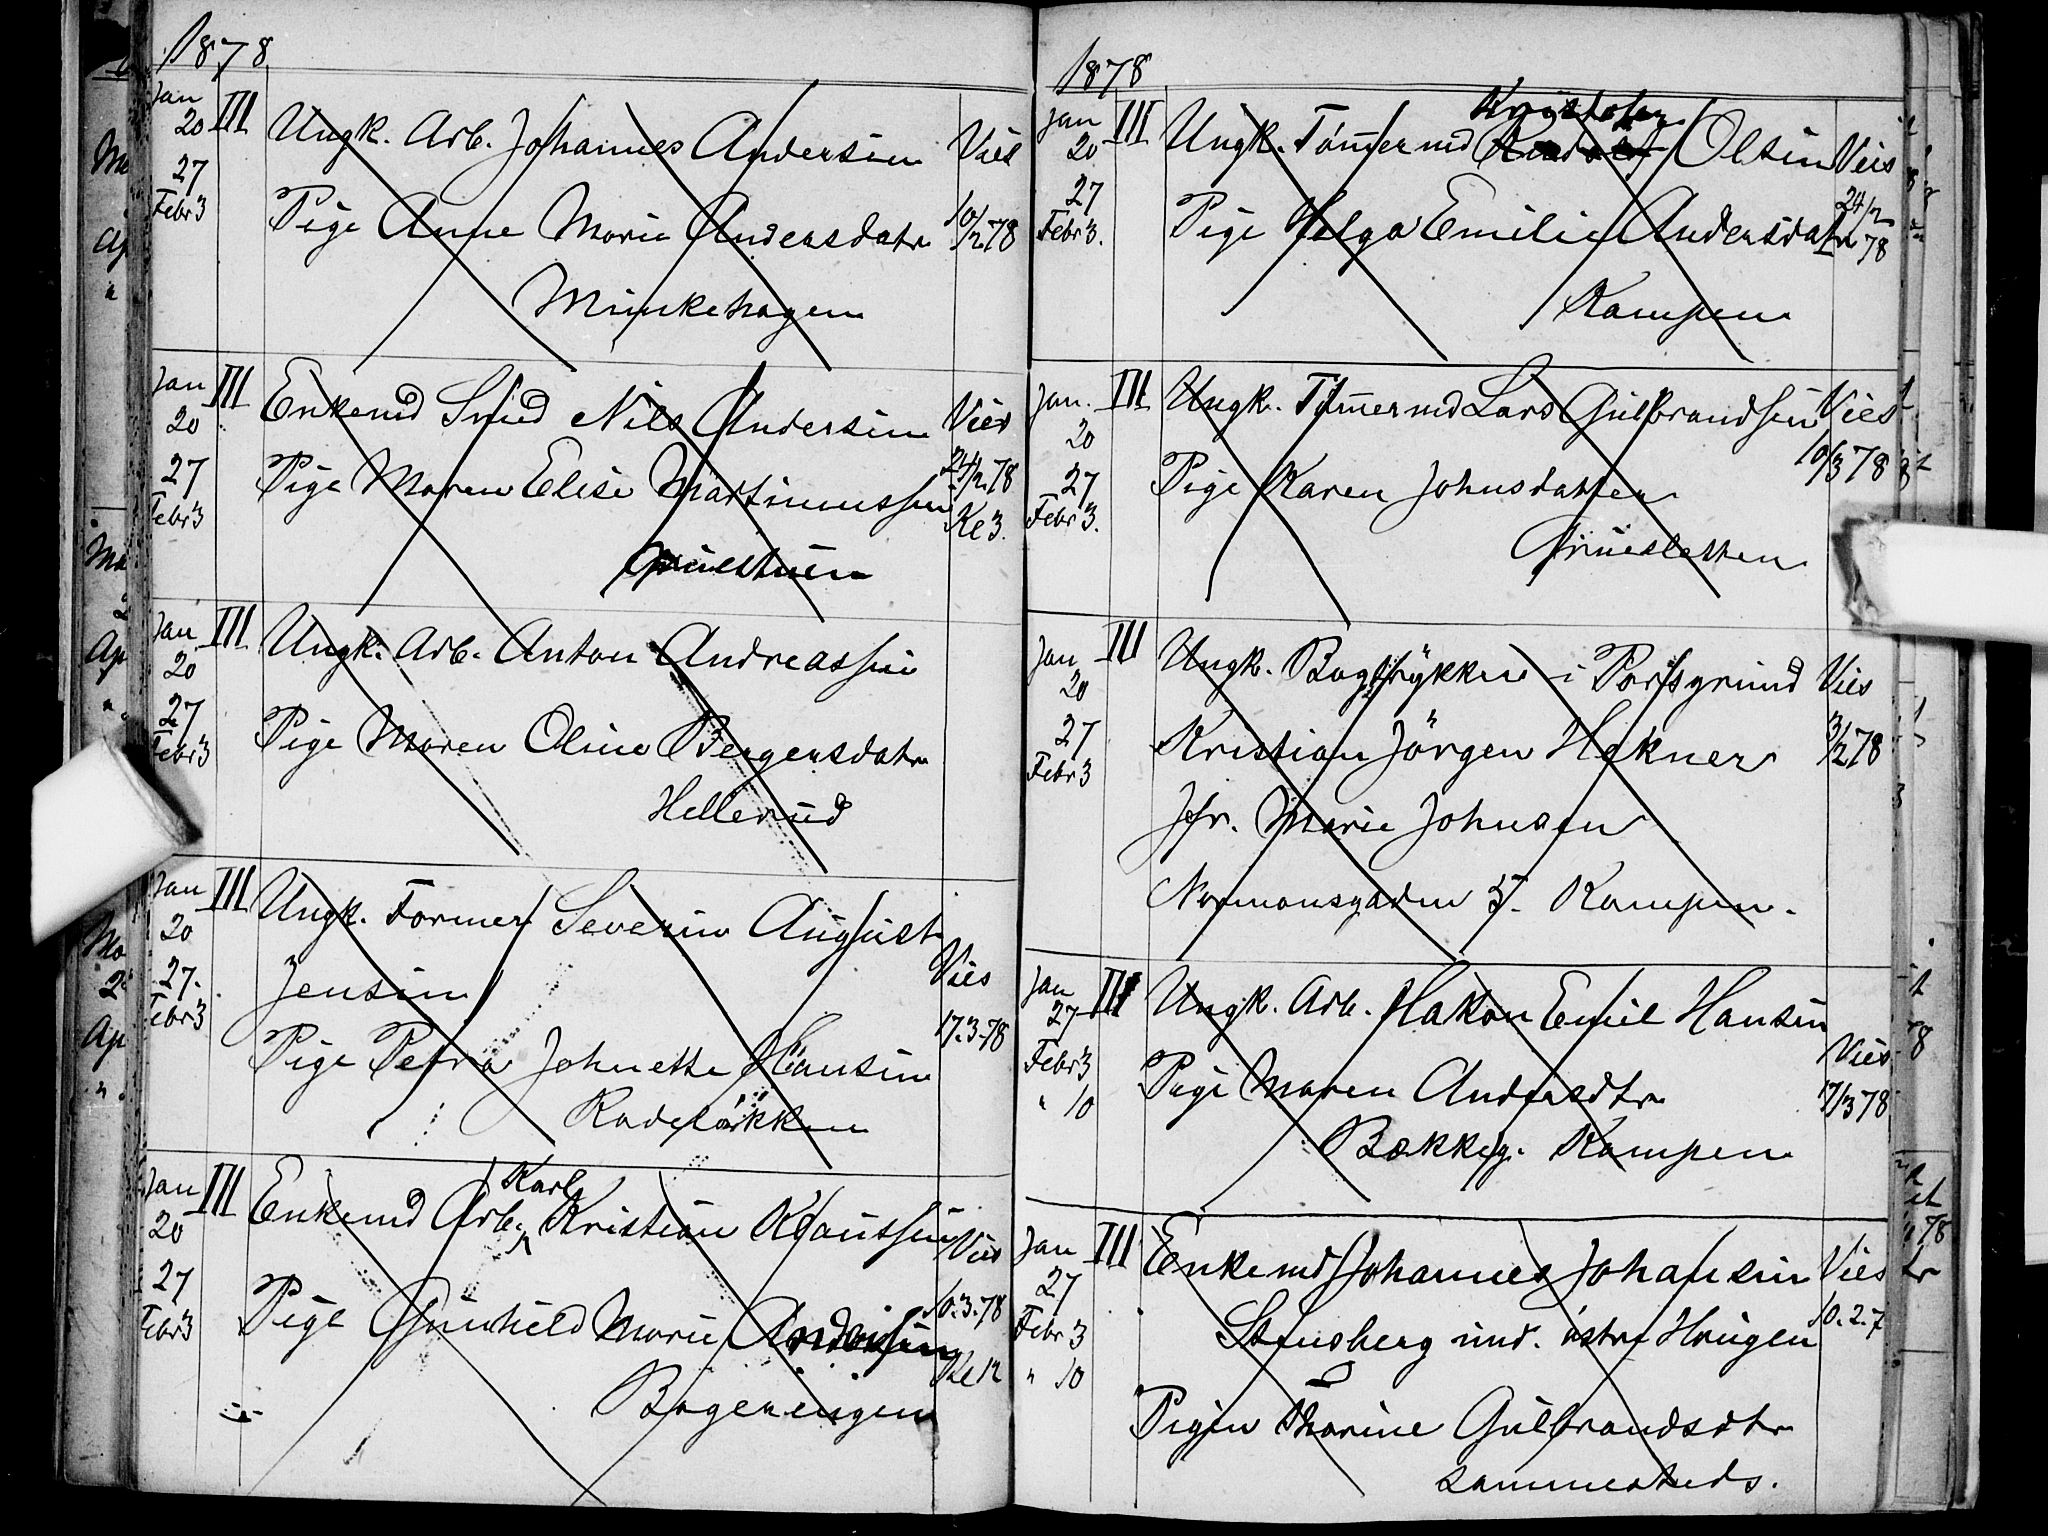 1878
Jan 20 III Ungk. Arb. Johannes Andersen Vies
27 Febr 3 Pige Anne Marie Andersdatr 10/2 78
Munkehagen
Jan 20 III Enkemd Smed Nils Andersen Vies
27 Febr 3 Pige Maren Elise Martinussen 24/2 78 Kl 3.
Jan 20 III Ungk. Arb. Anton Andreassen
27 Febr 3 Pige Maren Oline Bergersdatr
Hellerud
Jan 20 III Ungk. Former Severin August
27. Febr 3 Jensen Vies
Pige Petra Johnette Hansen 17.3.78
Rodeløkken
Jan 20 III Enkemd Arb. Karl Kristian Klaussen Vies
27 Febr 3 Pige Gunhild Marie Andersen 10.3.78
Kl 12
1878
Jan 20 III Ungk. Tømermd Kristofer Olsen Vies
27 Febr 3. Pige Helga Emilie Andersdatr 24/2 78
Kampen
Jan. 20 III Ungk. Tømermd Lars Gulbrandsen Vies
27 Febr 3. Pige Karen Johnsdatter 10/3 78
Grünesletten
Jan 20 III Ungk. Bogtrykker i Porsgrund Vies
27 Febr 3 Kristian Jørgen Hekner 3/2 78
Jfr. Marie Johnsen
Normansgaden 5. Kampen.
Jan 27 III Ungk. Arb. Hakon Emil Hansen
Febr 3 Vies
" 10 Pige Maren Andersdtr 17/3 78
Bækkeg. Kampen
Jan 27 III Enkemd Johannes Johansen Vies
Febr 3 Stensberg und. østre Haugen 10.2.7
" 10
Pigen Thorine Gulbrandsdtr
sammesteds.